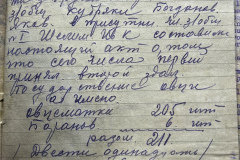 злобу Кубряки Богданов
сков. в присутствии чл. злобы
"1 Шелип ИвК составили
настоящий акт о том,
что сего числа первый
принял второй здал
Государственные овци
а имено
овцематки 205 шт
Баранов 6 шт
разом 211
(Двести одинадцать)